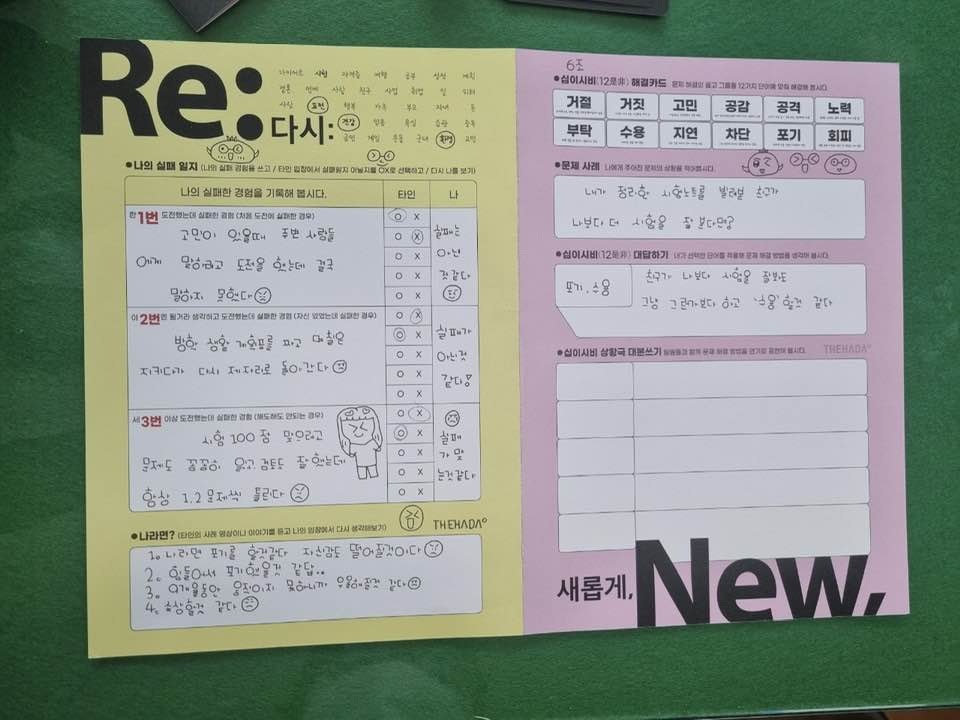 Re:
다시:
다이어트 시험 자격증 여행 공부 성적 계획
결혼 연애 사랑 친구 사업 취업 일 미래
도전 행복 가족 부모 자녀 돈
건강 인종 욕심 습관 중독
금연 게임 운동 군대 환경 고민
●나의 실패 일지 (나의 실패 경험을 쓰고 / 타인 입장에서 실패인지 아닌지를 OX로 선택하고 / 다시 나를 보기)
나의 실패한 경험을 기록해 봅시다. 타인 나
한 1번 도전했는데 실패한 경험 (처음 도전에 실패한 경우)
고민이 있을때 주변 사람들
에게 말하려고 도전을 했는데 결국
말하지 못했다
O X
O X
O X
O X
실패는
아닌
것같다
이 2번은 될거라 생각하고 도전했는데 실패한 경험 (자신 있었는데 실패한 경우)
방학 생활 계획표를 짜고 며칠은
지키다가 다시 제자리로 돌아간다
O X
O X
O X
O X
O X
실패가
아닌것
같다!
세 3번 이상 도전했는데 실패한 경험 (해도해도 안되는 경우)
시험 100점 맞으려고
문제도 꼼꼼히 읽고 검토도 잘 했는데
항상 1, 2 문제씩 틀린다
O X
O X
O X
O X
O X
실패
가 맞
는것같다
THEHADA
●나라면? (타인의 사례 영상이나 이야기를 듣고 나의 입장에서 다시 생각해보기)
1. 나라면 포기를 할것같다 자신감도 떨어질것이다
2. 힘들어서 포기했을것 같답..
3. 9개월동안 움직이지 못하니까 우울해질것 같다
4. 속상할것 같다
6조
●십이시비(12是非) 해결카드 문제 해결의 옳고 그름을 12가지 단어에 맞춰 해결해 봅시다.
거절 거짓 고민 공감 공격 노력
부탁 수용 지연 차단 포기 회피
●문제 사례 나에게 주어진 문제의 상황을 적어봅시다.
내가 정리한 시험노트를 빌려본 친구가
나보다 더 시험을 잘 본다면?
●십이시비(12是非) 대답하기 내가 선택한 단어를 적용해 문제 해결 방법을 생각해 봅시다.
포기, 수용
친구가 나보다 시험을 잘봐도
그냥 그런가보다 하고 '수용'할것 같다
●십이시비 상황극 대본쓰기 팀원들과 함께 문제 해결 방법을 연기로 표현해 봅시다.
THEHADA
새롭게, New,